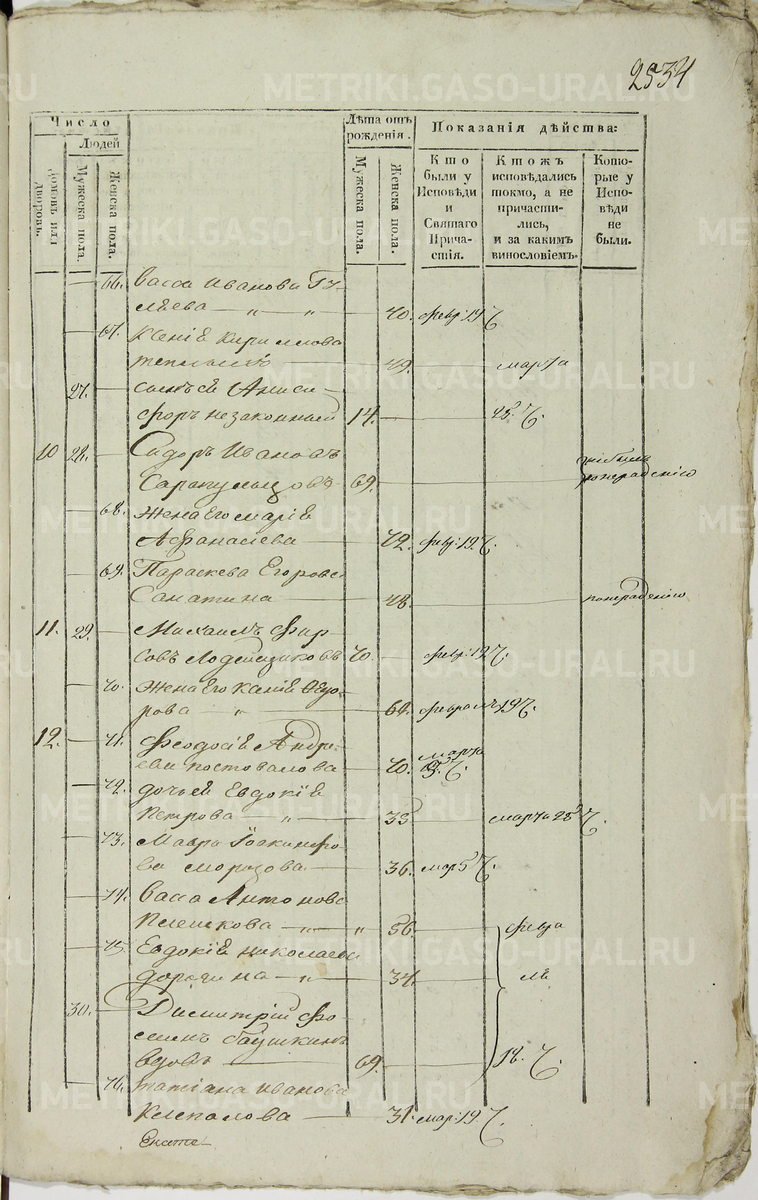 2534
METRIKI.GASO-URAL.RU
Число
Людей
домовъ или дворовъ.
Мужеска пола.
Женска пола.
Лѣта отъ рожденія.
Мужеска пола.
Женска пола.
Показанія дѣйства:
Кто были у Исповѣди и Святаго Причастія.
Ктожъ исповѣдались токмо, а не причастились, и за какимъ винословіемъ.
Которые у Исповѣди не были.
66. Васса Иванова Гу-
лѣева 40. февр: 19 Ч.
67. Ксенія Кирилова
49. марта
27. сынъ ея Аниси-
форъ незаконный 14. 25 Ч.
10 28. Сидоръ Ивановъ
Сарапульцовъ 69. понерадению
68. Жена его Марія
Афанасіева 42. февр: 19 Ч.
69. Параскева Егорова
Санатина 48. понерадению
11. 29. Михаилъ Фир-
совъ Лодейщиковъ 70. февр: 19 Ч.
70. Жена его Ксенія Федо-
рова 64. февраль 19 Ч.
12. 71. Феодосія Андре-
ева Постовалова 70. марта Ч.
72. дочь ея Евдокія
Петрова 33 марта 25 Ч.
73. Мавра Іоакимфо-
ва Морозова 36. мар 5 Ч.
74. Васса Антонова
Плешкова 56. февра
75. Евдокія Николаева
Дорогина 34. ль
30. Димитрій Фо-
минъ Баушкинъ
вдовъ 69. 18. Ч.
76. Татіана Иванова
Клепалова 31. мар: 19 Ч.